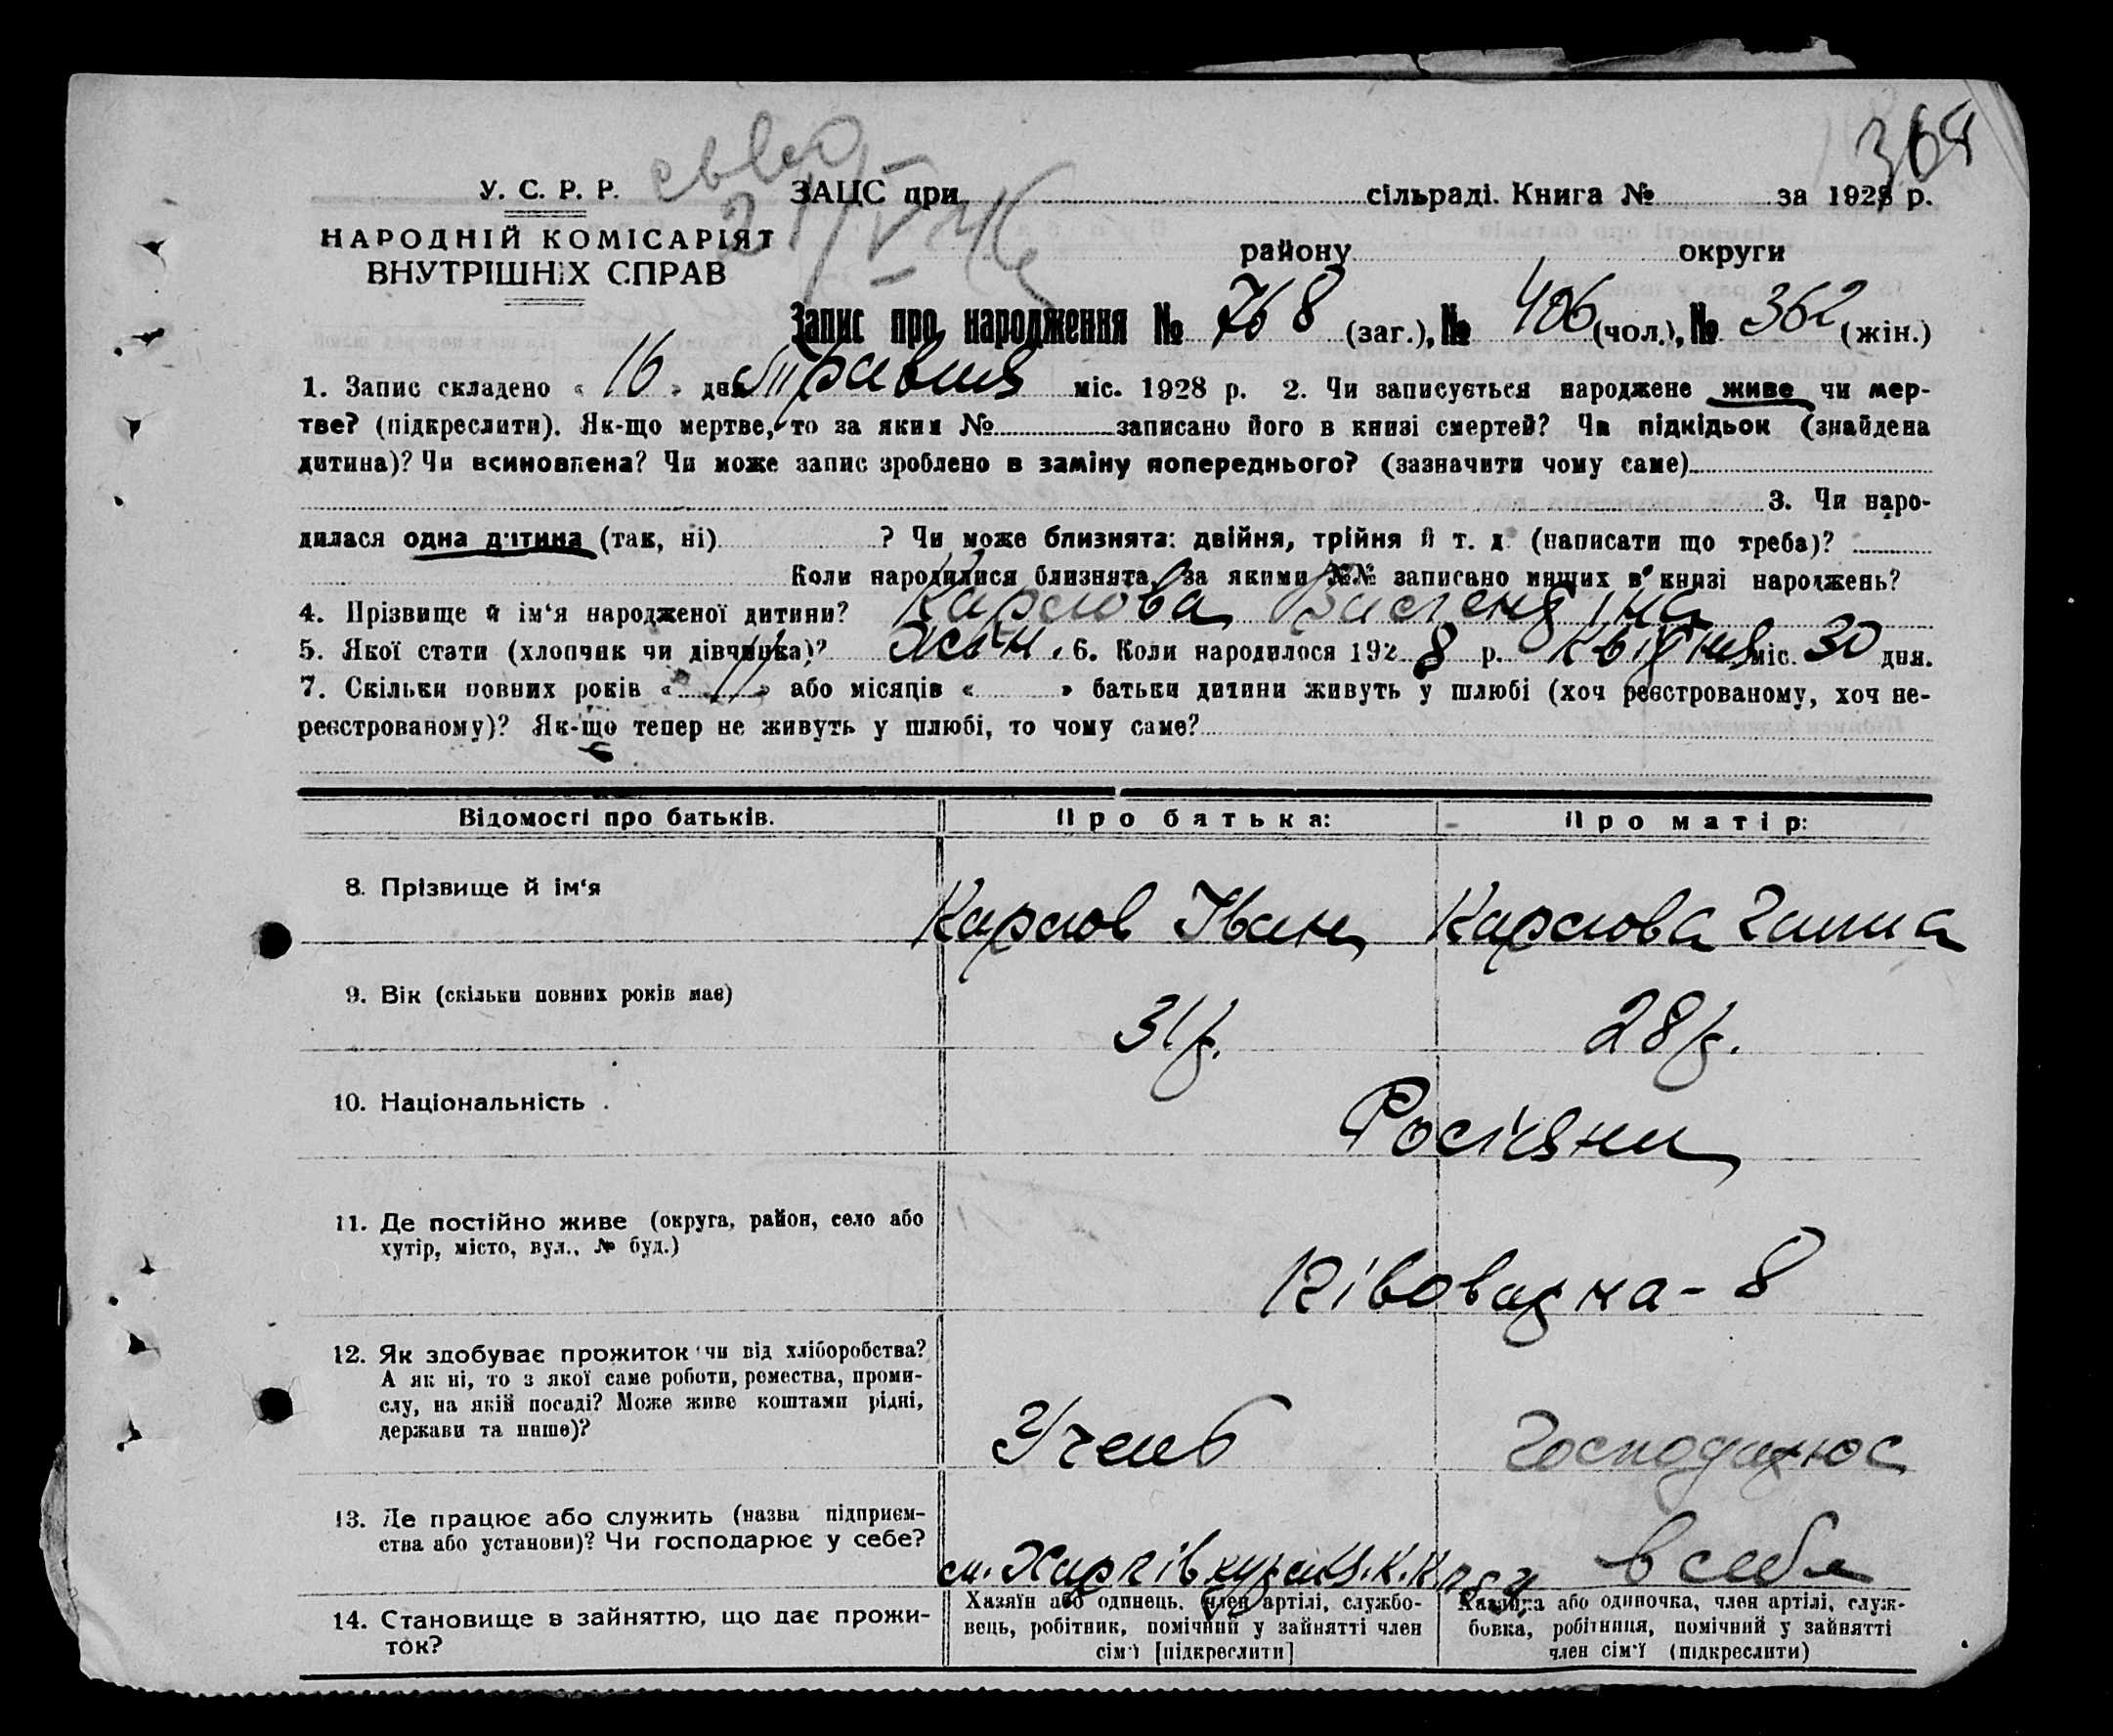 368
У. С. Р. Р. ЗАЦС при сільраді. Книга № за 1928 р.
НАРОДНІЙ КОМІСАРІЯТ
ВНУТРІШНІХ СПРАВ
району округи
Запис про народження № 768 (заг.), № 406 (чол.), № 362 (жін.)
1. Запис складено « 16 » дня Травня міс. 1928 р. 2. Чи записується народжене живе чи мер-
тве? (підкреслити). Як-що мертве, то за яким № записано його в книзі смертей? Чи підкідьок (знайдена
дитина)? Чи всиновлена? Чи може запис зроблено в заміну попереднього? (зазначити чому саме)
3. Чи наро-
дилася одна дитина (так, ні) ? Чи може близнята: двійня, трійня й т. д. (написати що треба)?
Коли народилися близнята, за якими №№ записано инших в книзі народжень?
4. Прізвище й ім‘я народженої дитини? Карпова
5. Якої стати (хлопчик чи дівчинка)? жін. 6. Коли народилося 1928 р. Квітня міс. 30 дня.
7. Скільки повних років « 11 » або місяців « » батьки дитини живуть у шлюбі (хоч реєстрованому, хоч не-
реєстрованому)? Як-що тепер не живуть у шлюбі, то чому саме?
Відомості про батьків. Про батька: Про матір:
8. Прізвище й ім‘я Іван Ганна
9. Вік (скільки повних років має) 31 р. 28 р.
10. Національність Росіяни
11. Де постійно живе (округа, район, село або
хутір, місто, вул., № буд.) - 8
12. Як здобуває прожиток чи від хліборобства?
А як ні, то з якої саме роботи, ремества, проми-
слу, на якій посаді? Може живе коштами рідні,
держави та инше)? Учень
13. Де працює або служить (назва підприєм-
ства або установи)? Чи господарює у себе? м. Харків в себе
14. Становище в зайняттю, що дає прожи-
ток?
Хазяїн або одинець, член артілі, службо-
вець, робітник, помічний у зайнятті член
сім‘ї [підкреслити]
Хазяйка або одиночка, член артілі, служ-
бовка, робітниця, помічний у зайнятті
член сім‘ї (підкреслити)